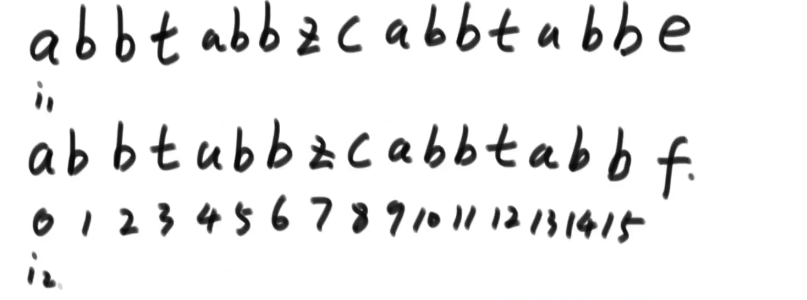 a b b t a b b z c a b b t a b b e
i1
a b b t a b b z c a b b t a b b f.
0 1 2 3 4 5 6 7 8 9 10 11 12 13 14 15
i2